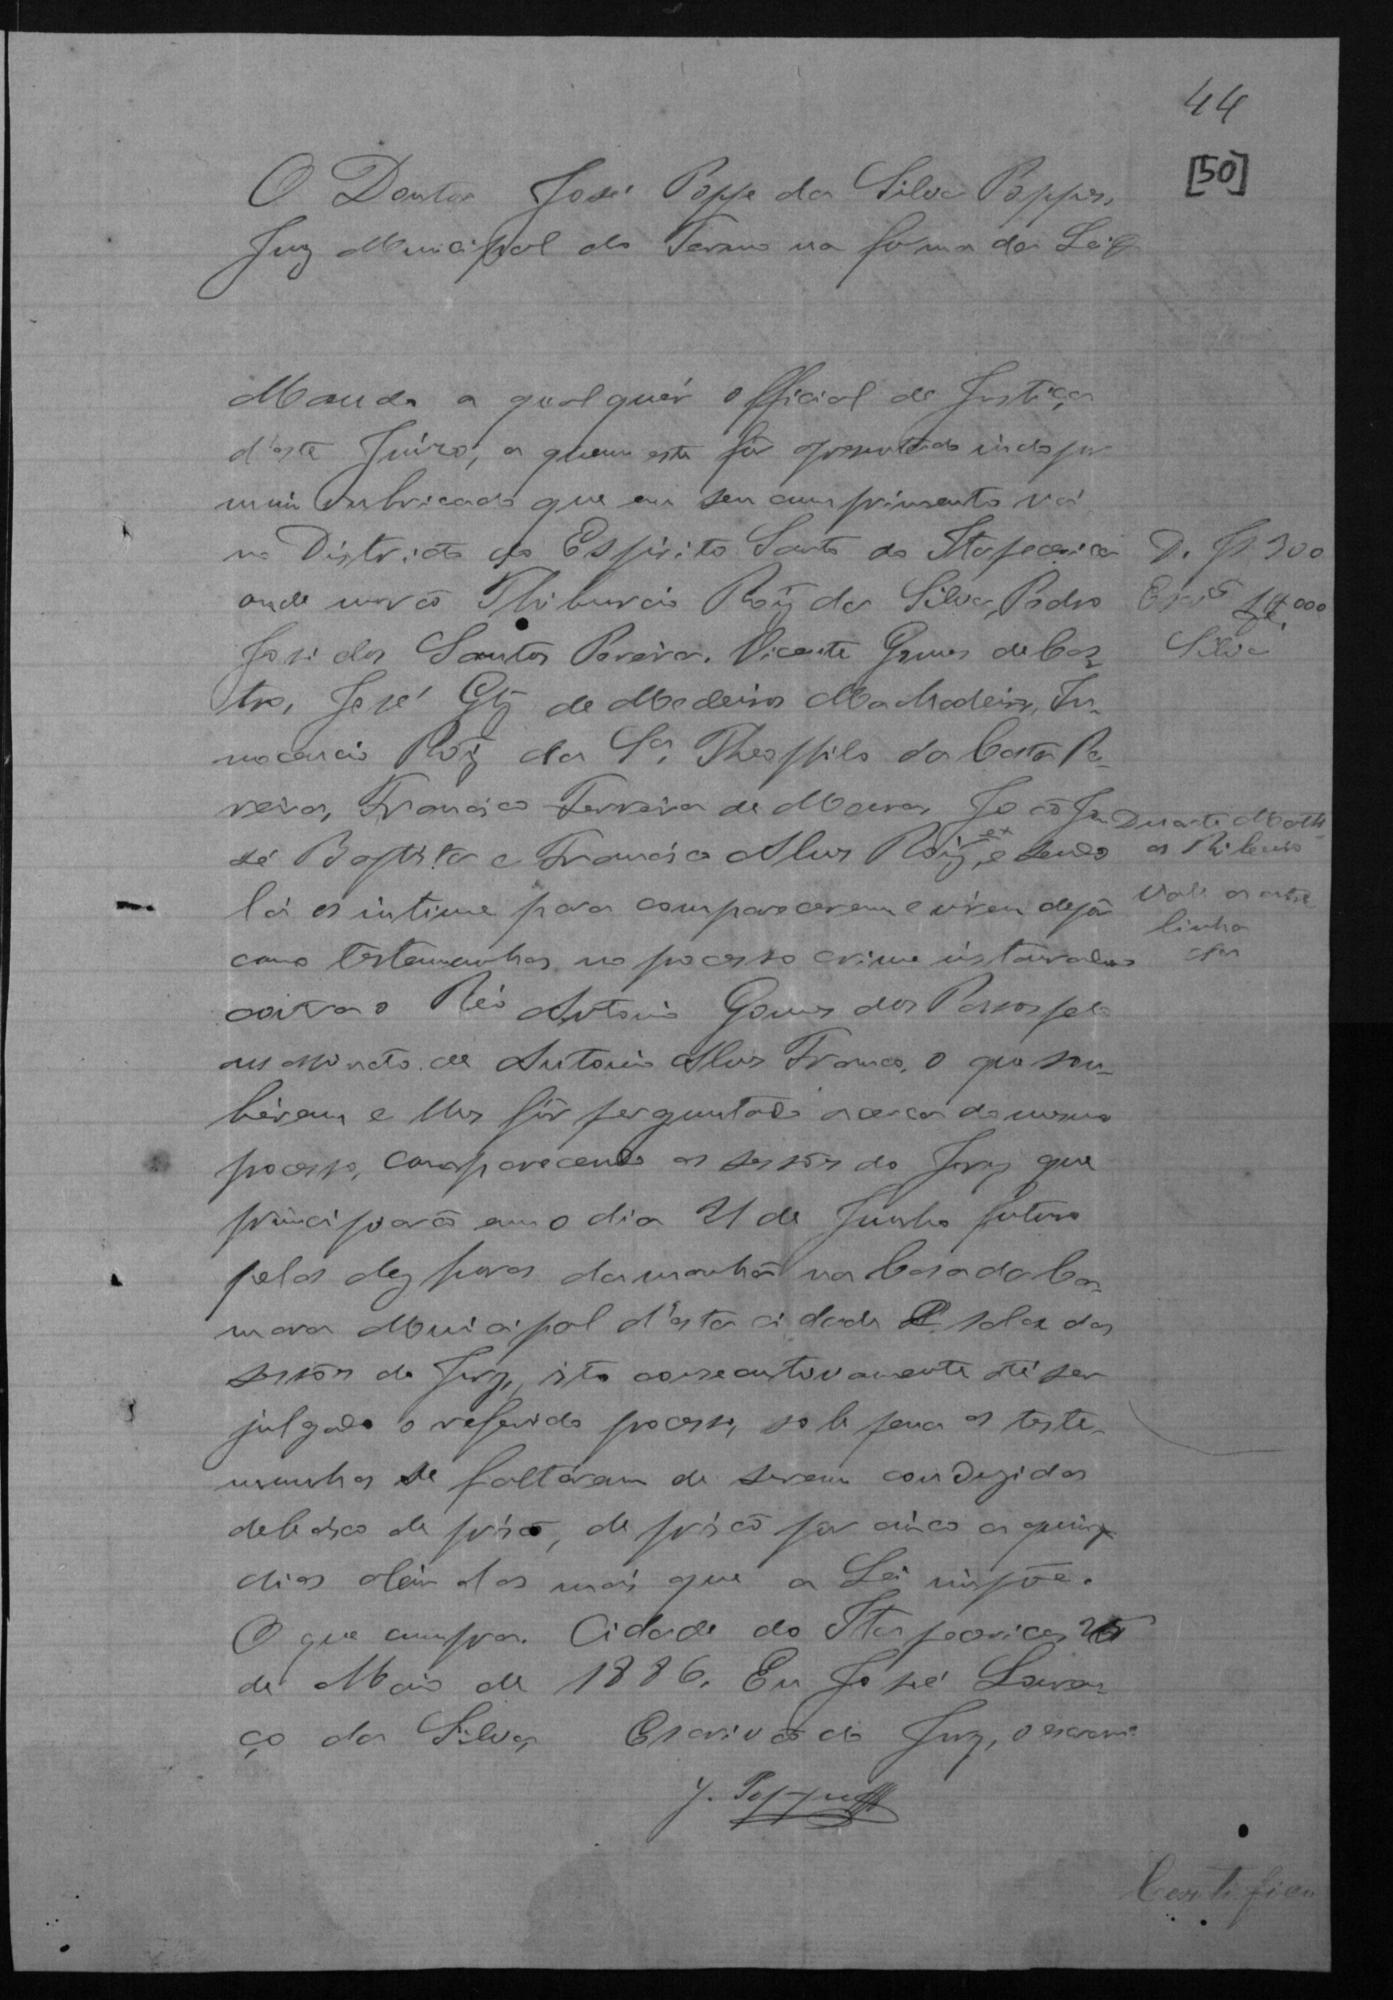 44
[50]
O Doutor José Poppe da Silva
Juiz Municipal do Termo na forma da Lei &
Manda a qualquér Official de Justiça
d'este Juizo, a quem este fôr apresentado indo por
mim rubricado que em seu cumprimento vá
no Districto do Espirito Santo do Itapecirica
onde morão Thiburcio Roiz da Silva, Pedro
José dos Santos Pereira, Vicente Gomes de Cas-
tro, José Glz de Medeiros Machadeiro, In-
nocencio Roiz da Sa, Theophilo da Costa Pe-
reira, Francisco Ferreira de Moura, João Jo-
sé Baptista e Francisco Alves Roiz, e sendo
lá os intime para comparecerem e virem depôr
como testemunhas no pocesso crime instaurado
contra o Réo Antonio Gomes dos Passos pelo
assassinato de Antonio Alves Franco, o que sou-
bérem e lhes fôr perguntado acerca do mesmo
pocesso, comparecendo as sessões do Jury que
principiarão em o dia 21 de Junho futuro
pelas dez horas da manhã na Casa da Ca-
mara Municipal d'esta cidade sala das
sessões do Jury, isto consecutivamente até ser
julgado o referido pocesso, sob pena as teste-
munhas se faltarem de serem conduzidas
debaixo de prisão, de prisão por cinco a quinze
dias além das mais que a Lei impõe.
O que cumpra. Cidade do Itapecirica
de Maio de 1886. Eu José Louren-
ço da Silva, Escrivão do Jury, o escrevi
J. Poppe
D. 300
Silva
Duarte
as Ribeiro
Vale a entre
linha
Certifico